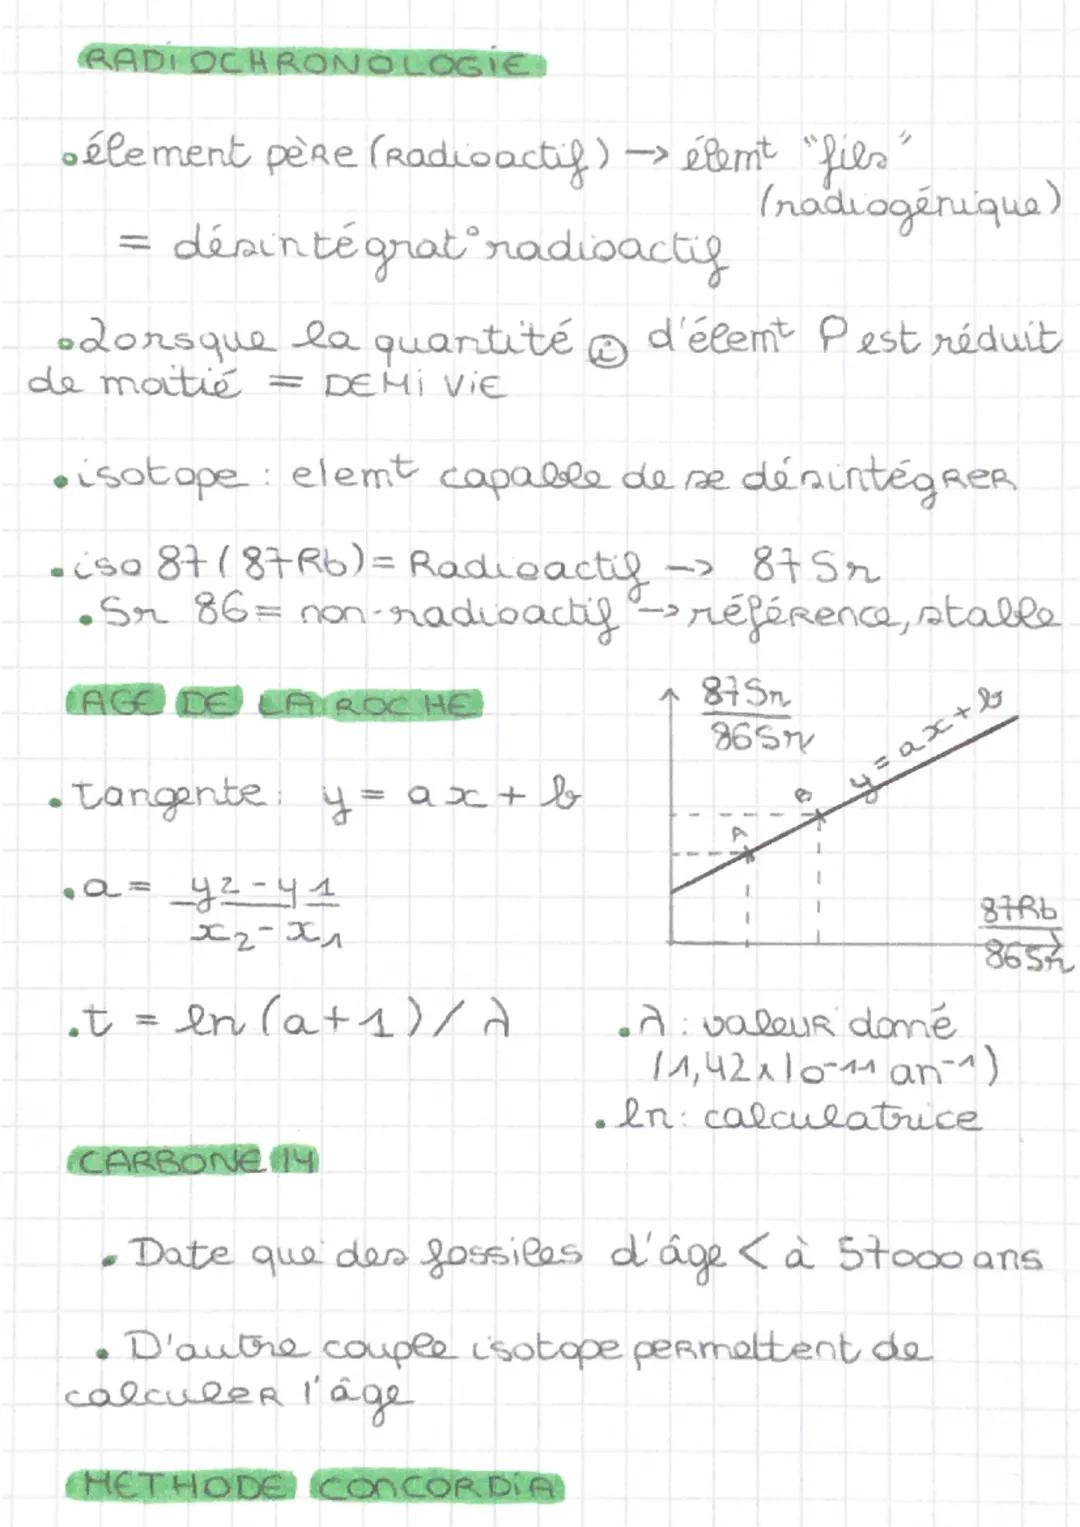 RADIOCHRONOLOGIE
• élement père (Radioactif) → élemt "fils"
(radiogénique)
= désintégrat° radioactif
• Lorsque la quantité ⓘ d'élemt P est réduit
de moitié = DEMI VIE
• isotope : elemt capable de se désintégRER
• iso 87 (87Rb) = Radioactif → 87Sr
• Sr 86 = non-radioactif → référence, stable
AGE DE LA ROCHE
87Sr
86Sr
y = ax + b
• tangente : y = ax + b
B
A
• a = y2 - y1
x2 - x1
87Rb
86Sr
• t = ln (a+1) / λ
• λ : valeur donné
(1,42 x 10-11 an-1)
• ln : calculatrice
CARBONE 14
• Date que des fossiles d'âge < à 57000 ans
• D'autre couple isotope permettent de
calculer l'âge
METHODE CONCORDIA